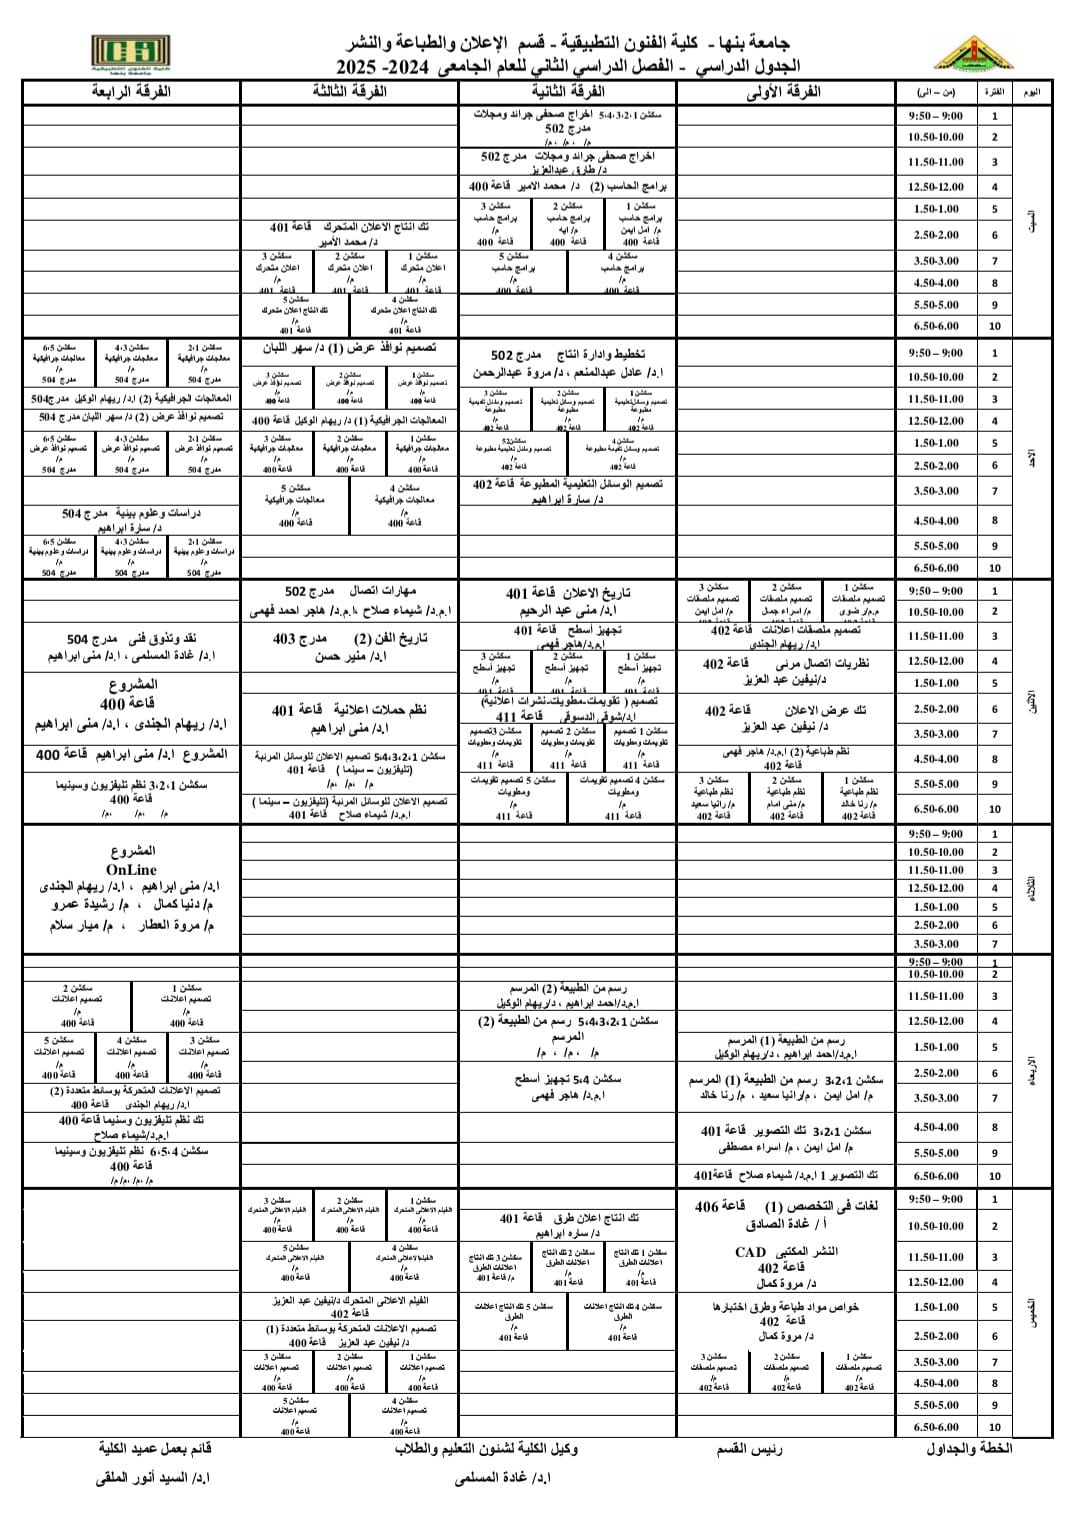 جامعة بنها - كلية الفنون التطبيقية - قسم الإعلان والطباعة والنشر
الجدول الدراسي - الفصل الدراسي الثاني للعام الجامعى 2024- 2025
اليوم الفترة (من – الى) الفرقة الأولى الفرقة الثانية الفرقة الثالثة الفرقة الرابعة
السبت
1 9:00 – 9:50
2 10.00-10.50
3 11.00-11.50
4 12.00-12.50
5 1.00-1.50
6 2.00-2.50
7 3.00-3.50
8 4.00-4.50
9 5.00-5.50
10 6.00-6.50
سكشن 5،4،3،2،1 اخراج صحفى جرائد ومجلات
مدرج 502
م/ ، م/ ، م/
اخراج صحفى جرائد ومجلات مدرج 502
د/ طارق عبدالعزيز
برامج الحاسب (2) د/ محمد الامير قاعة 400
سكشن 1 سكشن 2 سكشن 3
برامج حاسب برامج حاسب برامج حاسب
م/ امل ايمن م/ ايه م/
قاعة 400 قاعة 400 قاعة 400
سكشن 4 سكشن 5
برامج حاسب برامج حاسب
م/ م/
قاعة 400 قاعة 400
تك انتاج الاعلان المتحرك قاعة 401
د/ محمد الأمير
سكشن 1 سكشن 2 سكشن 3
اعلان متحرك اعلان متحرك اعلان متحرك
م/ م/ م/
قاعة 401 قاعة 401 قاعة 401
سكشن 4 سكشن 5
تك انتاج اعلان متحرك تك انتاج اعلان متحرك
م/ م/
قاعة 401 قاعة 401
الاحد
1 9:00 – 9:50
2 10.00-10.50
3 11.00-11.50
4 12.00-12.50
5 1.00-1.50
6 2.00-2.50
7 3.00-3.50
8 4.00-4.50
9 5.00-5.50
10 6.00-6.50
تخطيط وادارة انتاج مدرج 502
ا.د/ عادل عبدالمنعم ، د/ مروة عبدالرحمن
سكشن 1 سكشن 2 سكشن 3
تصميم وسائل تعليمية مطبوعة تصميم وسائل تعليمية مطبوعة تصميم وسائل تعليمية مطبوعة
م/ م/ م/
قاعة 402 قاعة 402 قاعة 402
سكشن 4 سكشن52
تصميم وسائل تعليمة مطبوعة تصميم وسائل تعليمية مطبوعة
م/ م/
قاعة 402 قاعة 402
تصميم الوسائل التعليمية المطبوعة قاعة 402
د/ سارة ابراهيم
تصميم نوافذ عرض (1) د/ سهر اللبان
سكشن 1 سكشن 2 سكشن 3
تصميم نوافذ عرض تصميم نوافذ عرض تصميم نوافذ عرض
م/ م/ م/
قاعة 400 قاعة 400 قاعة 400
المعالجات الجرافيكية (1) د/ ريهام الوكيل قاعة 400
سكشن 1 سكشن 2 سكشن 3
معالجات جرافيكية معالجات جرافيكية معالجات جرافيكية
م/ م/ م/
قاعة 400 قاعة 400 قاعة 400
سكشن 4 سكشن 5
معالجات جرافيكية معالجات جرافيكية
م/ م/
قاعة 400 قاعة 400
سكشن 2،1 سكشن 4،3 سكشن 6،5
معالجات جرافيكية معالجات جرافيكية معالجات جرافيكية
م/ م/ م/
مدرج 504 مدرج 504 مدرج 504
المعالجات الجرافيكية (2) ا.د/ ريهام الوكيل مدرج504
تصميم نوافذ عرض (2) د/ سهر اللبان مدرج 504
سكشن 2،1 سكشن 4،3 سكشن 6،5
تصميم نوافذ عرض تصميم نوافذ عرض تصميم نوافذ عرض
م/ م/ م/
مدرج 504 مدرج 504 مدرج 504
دراسات وعلوم بينية مدرج 504
د/ سارة ابراهيم
سكشن 2،1 سكشن 4،3 سكشن 6،5
دراسات وعلوم بينية دراسات وعلوم بينية دراسات وعلوم بينية
م/ م/ م/
مدرج 504 مدرج 504 مدرج 504
الاثنين
1 9:00 – 9:50
2 10.00-10.50
3 11.00-11.50
4 12.00-12.50
5 1.00-1.50
6 2.00-2.50
7 3.00-3.50
8 4.00-4.50
9 5.00-5.50
10 6.00-6.50
سكشن 1 سكشن 2 سكشن 3
تصميم ملصقات تصميم ملصقات تصميم ملصقات
م.م/ر ضوى م/ اسراء جمال م/ امل ايمن
تصميم ملصقات اعلانات قاعة 402
ا.د/ ريهام الجندى
نظريات اتصال مرئى قاعة 402
د/نيفين عبد العزيز
تك عرض الاعلان قاعة 402
د/ نيفين عبد العزيز
نظم طباعية (2) ا.م.د/ هاجر فهمى
قاعة 402
سكشن 1 سكشن 2 سكشن 3
نظم طباعية نظم طباعية نظم طباعية
م/ رنا خالد م/ منى امام م/ رانيا سعيد
قاعة 402 قاعة 402 قاعة 402
تاريخ الاعلان قاعة 401
ا.د/ منى عبد الرحيم
تجهيز أسطح قاعة 401
ا.م.د/هاجر فهمى
سكشن 1 سكشن 2 سكشن 3
تجهيز أسطح تجهيز أسطح تجهيز أسطح
م/ م/ م/
قاعة 401 قاعة 401 قاعة 401
تصميم ( تقويمات-مطويات-نشرات اعلانية)
ا.د/شوقى الدسوقى قاعة 411
سكشن 1 تصميم سكشن 2 تصميم سكشن 3تصميم
تقويمات ومطويات تقويمات ومطويات تقويمات ومطويات
م/ م/ م/
قاعة 411 قاعة 411 قاعة 411
سكشن 4 تصميم تقويمات سكشن 5 تصميم تقويمات
ومطويات ومطويات
م/ م/
قاعة 411 قاعة 411
مهارات اتصال مدرج 502
ا.م.د/ شيماء صلاح ،ا.م.د/ هاجر احمد فهمى
تاريخ الفن (2) مدرج 403
ا.د/ منير حسن
نظم حملات اعلانية قاعة 401
ا.د/ منى ابراهيم
سكشن 5،4،3،2،1 تصميم الاعلان للوسائل المرئية
(تليفزيون – سينما ) قاعة 401
م/ م/، م/،
تصميم الاعلان للوسائل المرئية (تليفزيون – سينما )
ا.م.د/ شيماء صلاح قاعة 401
نقد وتذوق فنى مدرج 504
ا.د/ غادة المسلمى ، ا.د/ منى ابراهيم
المشروع
قاعة 400
ا.د/ ريهام الجندى ، ا.د/ منى ابراهيم
المشروع ا.د/ منى ابراهيم قاعة 400
سكشن 3،2،1 نظم تليفزيون وسينيما
قاعة 400
م/ م/، م/،
الثلاثاء
1 9:00 – 9:50
2 10.00-10.50
3 11.00-11.50
4 12.00-12.50
5 1.00-1.50
6 2.00-2.50
7 3.00-3.50
المشروع
OnLine
ا.د/ منى ابراهيم ، ا.د/ ريهام الجندى
م/ دنيا كمال ، م/ رشيدة عمرو
م/ مروة العطار ، م/ ميار سلام
الاربعاء
1 9:00 – 9:50
2 10.00-10.50
3 11.00-11.50
4 12.00-12.50
5 1.00-1.50
6 2.00-2.50
7 3.00-3.50
8 4.00-4.50
9 5.00-5.50
10 6.00-6.50
رسم من الطبيعة (1) المرسم
ا.م.د/احمد ابراهيم ، د/ريهام الوكيل
سكشن 3،2،1 رسم من الطبيعة (1) المرسم
م/ امل ايمن ، م/رانيا سعيد ، م/ رنا خالد
سكشن 3،2،1 تك التصوير قاعة 401
م/ امل ايمن ، م/ اسراء مصطفى
تك التصوير 1 ا.م.د/ شيماء صلاح قاعة401
رسم من الطبيعة (2) المرسم
ا.م.د/احمد ابراهيم ، د/ريهام الوكيل
سكشن 5،4،3،2،1 رسم من الطبيعة (2)
المرسم
م/ ، م/ ، م/
سكشن 5،4 تجهيز أسطح
ا.م.د/ هاجر فهمى
سكشن 1 سكشن 2
تصميم اعلانات تصميم اعلانات
م/ م/
قاعة 400 قاعة 400
سكشن 3 سكشن 4 سكشن 5
تصميم اعلانات تصميم اعلانات تصميم اعلانات
م/ م/ م/
قاعة 400 قاعة 400 قاعة 400
تصميم الاعلانات المتحركة بوسائط متعددة (2)
ا.د/ ريهام الجندى قاعة 400
تك نظم تليفزيون وسنيما قاعة 400
ا.م.د/شيماء صلاح
سكشن 6،5،4 نظم تليفزيون وسينيما
قاعة 400
م/ م/، م/، م/
الخميس
1 9:00 – 9:50
2 10.00-10.50
3 11.00-11.50
4 12.00-12.50
5 1.00-1.50
6 2.00-2.50
7 3.00-3.50
8 4.00-4.50
9 5.00-5.50
10 6.00-6.50
لغات فى التخصص (1) قاعة 406
أ / غادة الصادق
النشر المكتبى CAD
قاعة 402
د/ مروة كمال
خواص مواد طباعة وطرق اختبارها
قاعة 402
د/ مروة كمال
سكشن 1 سكشن 2 سكشن 3
تصميم ملصقات تصميم ملصقات تصميم ملصقات
م/ م/ م/
قاعة 402 قاعة 402 قاعة 402
تك انتاج اعلان طرق قاعة 401
د/ ساره ابراهيم
سكشن 1 تك انتاج سكشن 2 تك انتاج سكشن 3 تك انتاج
اعلانات الطرق اعلانات الطرق اعلانات الطرق
م/ م/
قاعة 401 قاعة 401 م/ قاعة 401
سكشن 4 تك انتاج اعلانات سكشن 5 تك انتاج اعلانات
الطرق الطرق
م/ م/
قاعة 401 قاعة 401
سكشن 1 سكشن 2 سكشن 3
الفيلم الاعلانى المتحرك الفيلم الاعلانى المتحرك الفيلم الاعلانى المتحرك
م/ م/ م/
قاعة 400 قاعة 400 قاعة 400
سكشن 4 سكشن 5
الفيلم الاعلانى المتحرك الفيلم الاعلانى المتحرك
م/ م/
قاعة 400 قاعة 400
الفيلم الاعلانى المتحرك د/نيفين عبد العزيز
قاعة 402
تصميم الاعلانات المتحركة بوسائط متعددة (1)
د/ نيفين عبد العزيز قاعة 400
سكشن 1 سكشن 2 سكشن 3
تصميم اعلانات تصميم اعلانات تصميم اعلانات
م/ م/ م/
قاعة 400 قاعة 400 قاعة 400
سكشن 4 سكشن 5
تصميم اعلانات تصميم اعلانات
م/ م/
قاعة 400 قاعة 400
الخطة والجداول رئيس القسم وكيل الكلية لشئون التعليم والطلاب قائم بعمل عميد الكلية
ا.د/ غادة المسلمى ا.د/ السيد أنور الملقى